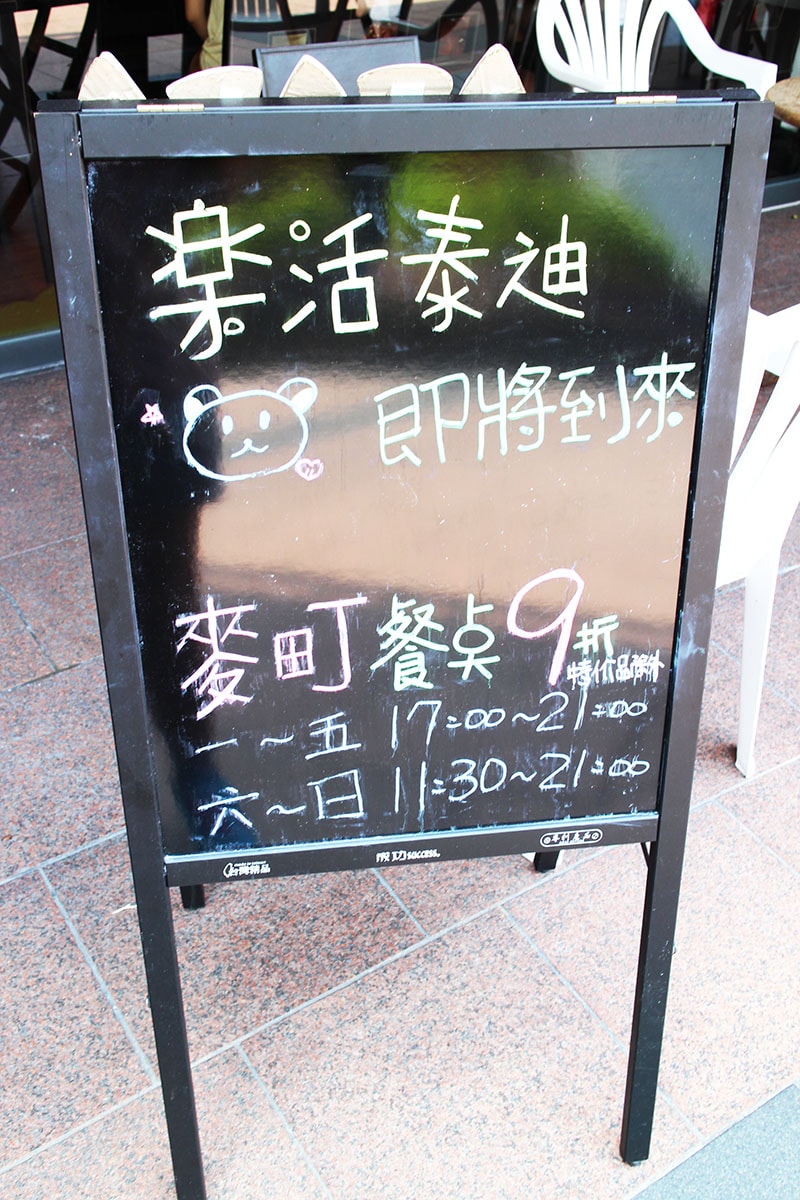 楽活泰迪
即將到來
麥町餐桌9折
特价品除外
一~五 17:00~21:00
六~日 11:30~21:00
台灣精品
成功 success
專利產品